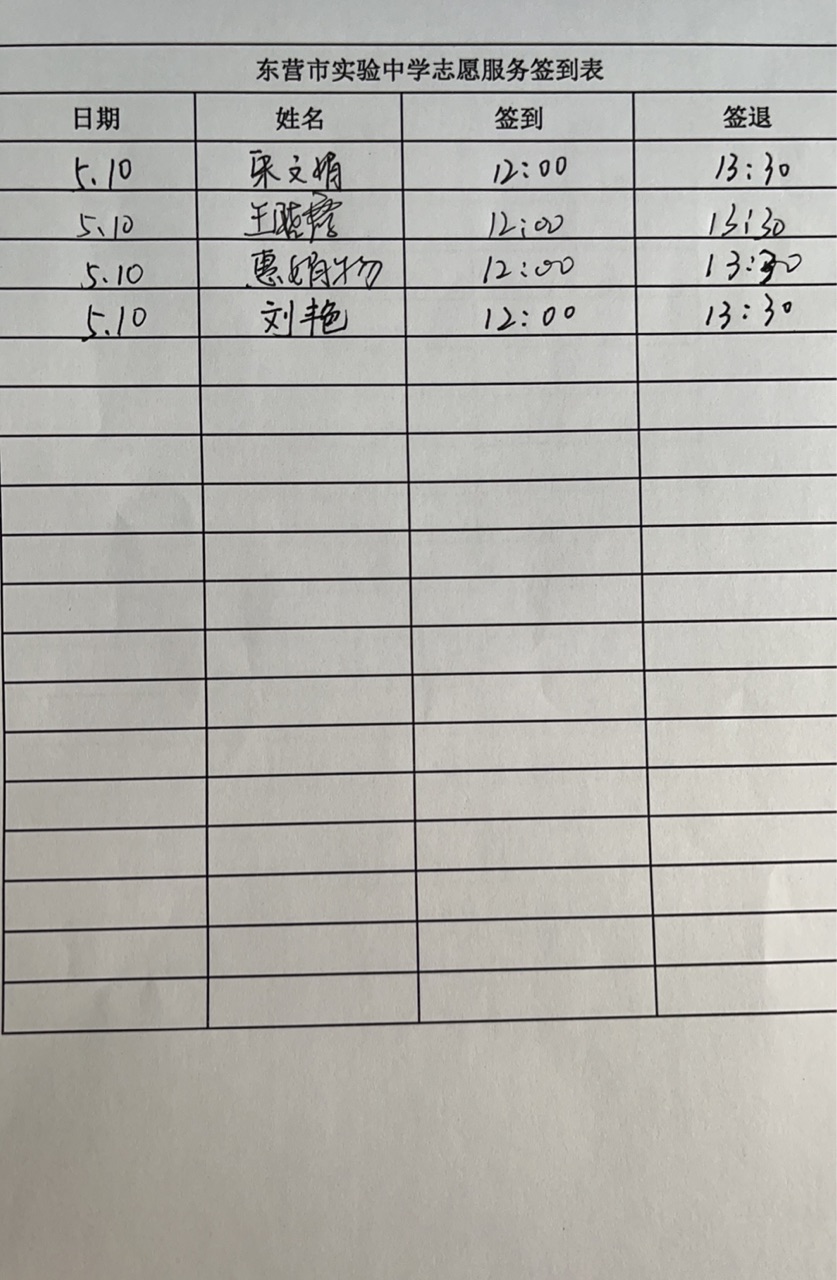 东营市实验中学志愿服务签到表
日期 姓名 签到 签退
5.10 宋文娟 12:00 13:30
5.10 王 12:00 13:30
5.10 惠娟 12:00 13:30
5.10 刘艳 12:00 13:30